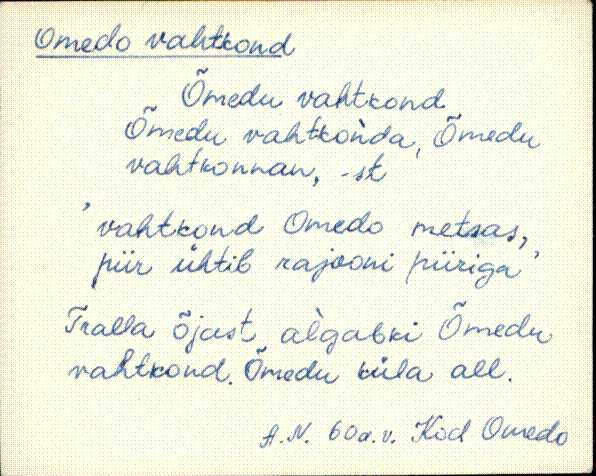 Omedo vahtkond
Õmedu vahtkond
Õmedu vahtkon̆da, Õmedu
vahtkonnan, -st
'vahtkond Omedo metsas,
piir ühtib rajooni piiriga'
Tralla õjast al̀gabki Õmedu
vahtkond. Õmedu küla all.
A.N. 60a.v. Kod Omedo